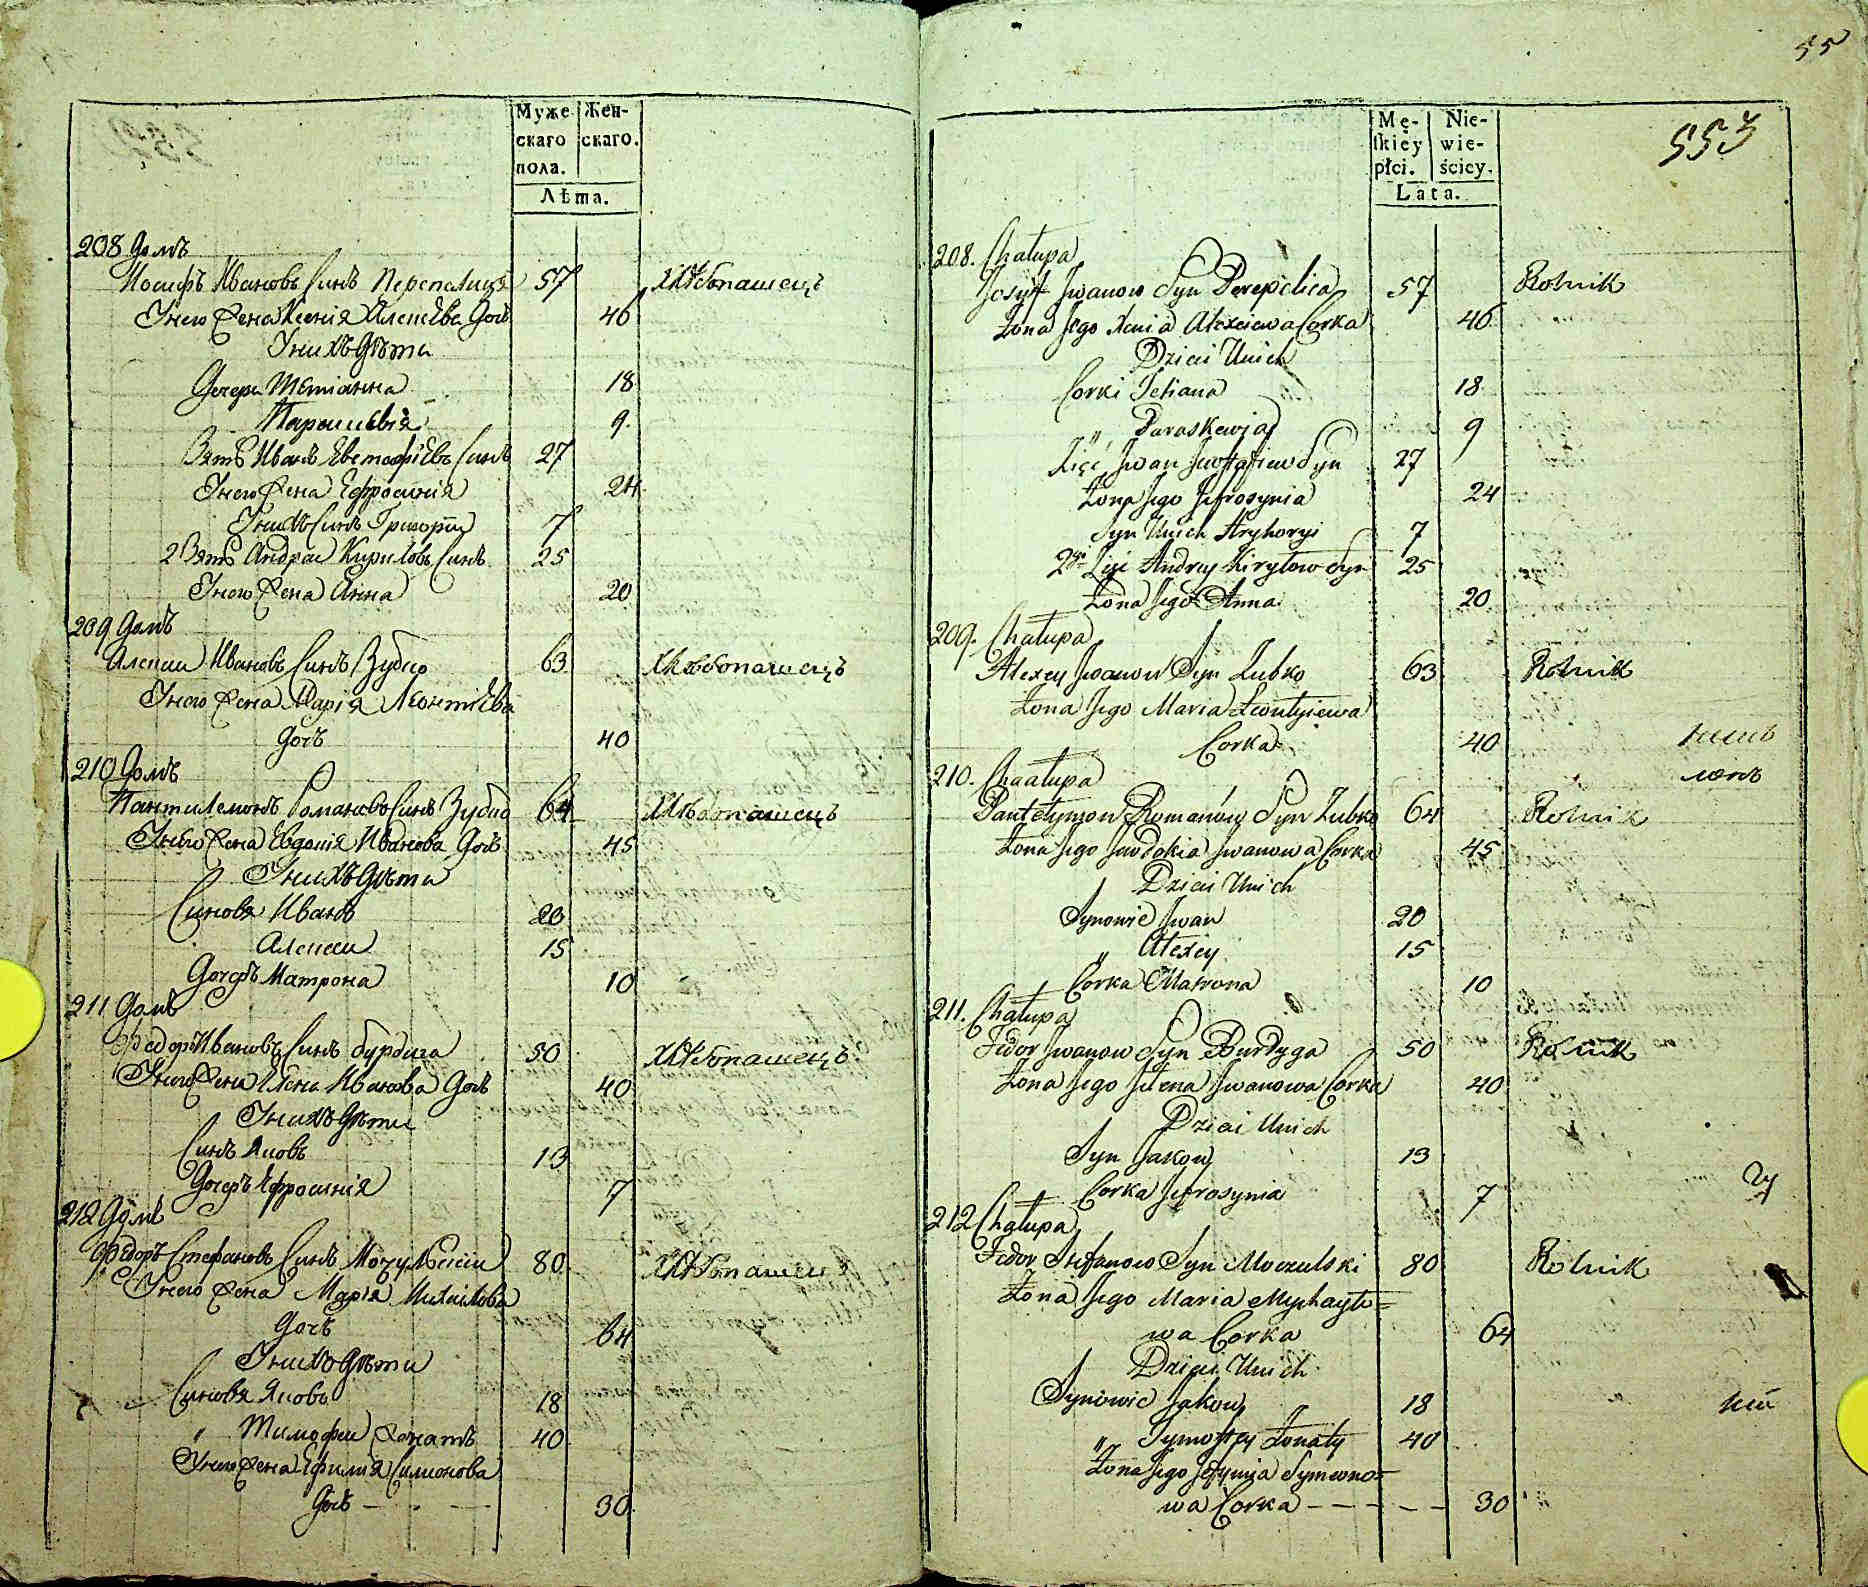 Муже
скаго
пола.
Жен-
скаго.
Лѣта.
208 Домъ
Иосифъ Ивановъ Синъ Перепелиця 57 Хлѣбопашецъ
У него жена Ксенія Алексѣева Дочь 46
У нихъ Дѣти
Дочери Тетіанна 18
Параскевія 9
Зять Иванъ Евстафіевъ Синъ 27
У него жена Ефросинія 24
У нихъ Синъ Григорій 7
2 Зять Андреи Кириловъ Синъ 25
У него жена Анна 20
209 Домъ
Алексии Ивановъ Синъ Зубко 63 Хлѣбопашецъ
У него жена Марія Леонтіева
Дочь 40
210 Домъ
Пантилемонъ Романовъ Синъ Зубко 64 Хлѣбопашецъ
У него жена Евдокія Иванова Дочь 45
У нихъ Дѣти
Синовя Иванъ 20
Алексии 15
Дочеръ Матрона 10
211 Домъ
Федоръ Ивановъ Синъ бурдига 50 Хлѣбопашецъ
У него жена Елена Иванова Дочь 40
У нихъ Дѣти
Синъ Яковъ 13
Дочеръ Ефросинія 7
212 Домъ
Федоръ Стефановъ Синъ Мочулскии 80 Хлѣбопашец
У него жена Марія Михаилова
Дочь 64
У нихъ Дѣти
Синовя Яковъ 18
„ Тимофии жонатъ 40
У него жена Ефимія Симионова
Дочь — — 30
55
553
Mę-
skiey
płci.
Nie-
wie-
ścicy.
Lata.
208. Chałupa
Josyf Jwanow Syn Perepelica 57 Rolnik
Żona Jego Xenia Alexiewa Corka 46
Dzieci Unich
Corki Tetiana 18
„ Paraskewja 9
Zięć Jwan Jewstafiew Syn 27
Żona Jego Jefrosynia 24
Syn Unich Hryhoryi 7
2gi Zięć Andrey Kiryłow Syn 25
Żona Jego Anna 20
209. Chałupa
Alexey Jwanow Syn Zubko 63 Rolnik
Żona Jego Maria Leontyiewa
Corka 40
210. Chaałupa
Pantelymon Romanów Syn Zubko 64 Rolnik
Żona Jego Jewdokia Jwanowa Corka 45
Dzieci Unich
Synowie Jwan 20
„ Alexiy 15
Corka Matrona 10
211. Chałupa
Fedor Jwanow Syn Burdyga 50 Rolnik
Żona Jego Jełena Jwanowa Corka 40
Dzieci Unich
Syn Jakow 13
Corka Jefrosynia 7
212 Chałupa
Fedor Stefanow Syn Moczulski 80 Rolnik
Żona Jego Maria Mychayło=
wa Corka 64
Dzieci Unich
Synowie Jakow 18
„ Tymofiey Żonaty 40
Żona Jego Jefymia Symeono=
wa Corka – – – – 30